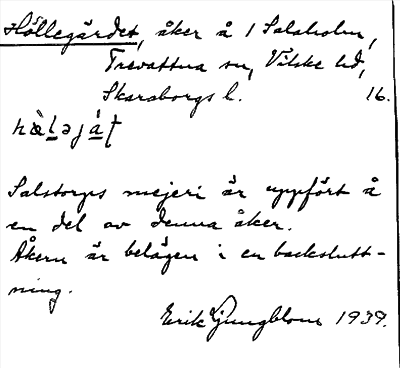 Höllegärdet, åker å 1 Salaholm,
Trevattna sn, Vilske hd,
Skaraborgs l. 16.
Salstorps mejeri är uppfört å
en del av denna åker.
Åkern är belägen i en backslutt-
ning.
Erik Ljungblom 1939.